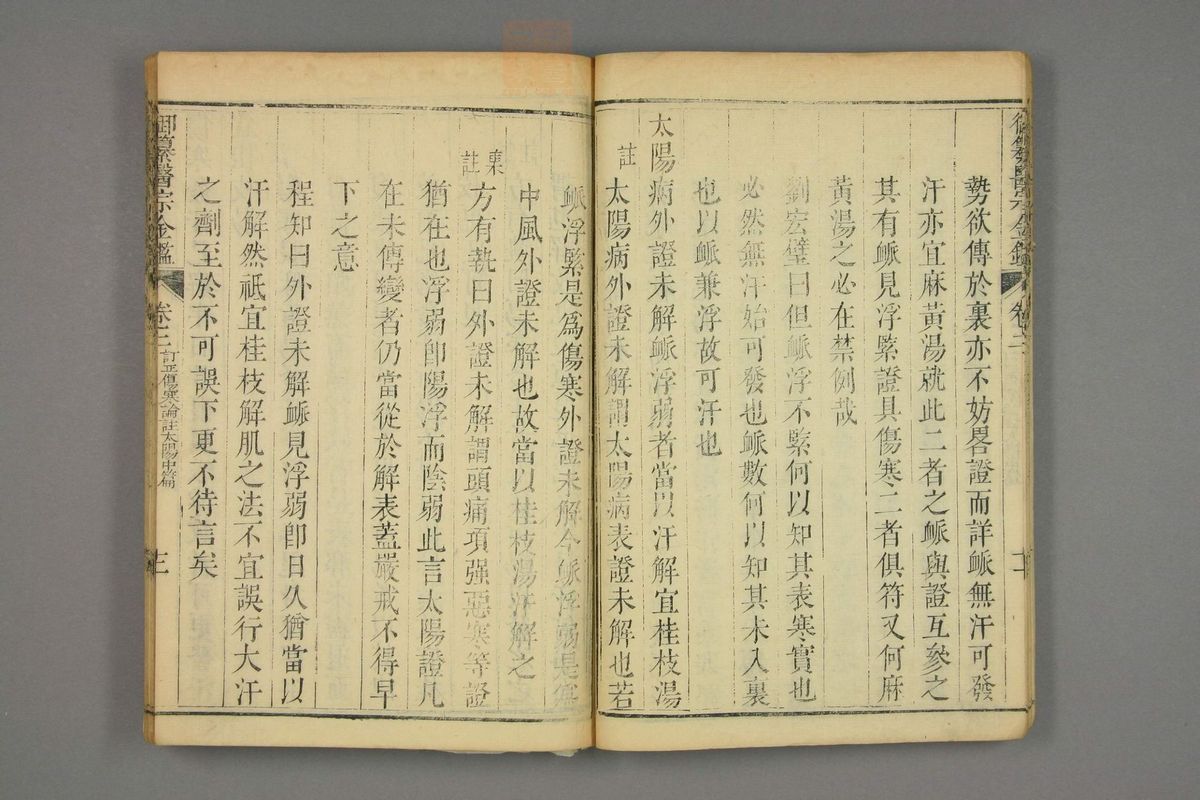 勢欲傳於裏亦不妨畧證而詳脈無汗可發
汗亦宜麻黃湯就此二者之脈與證互參之
其有脈見浮緊證具傷寒二者俱符又何麻
黃湯之必在禁例哉
劉宏璧曰但脈浮不緊何以知其表寒實也
必然無汗始可發也脈數何以知其未入裏
也以脈兼浮故可汗也
太陽病外證未解脈浮弱者當以汗解宜桂枝湯
註 太陽病外證未解謂太陽病表證未解也若
脈浮緊是爲傷寒外證未解今脈浮弱是爲
中風外證未解也故當以桂枝湯汗解之
集註 方有執曰外證未解謂頭痛項强惡寒等證
猶在也浮弱卽陽浮而陰弱此言太陽證凡
在未傳變者仍當從於解表蓋嚴戒不得早
下之意
程知曰外證未解脈見浮弱卽日久猶當以
汗解然祇宜桂枝解肌之法不宜誤行大汗
之劑至於不可誤下更不待言矣
御纂醫宗金鑑 卷二 訂正傷寒論註太陽中篇